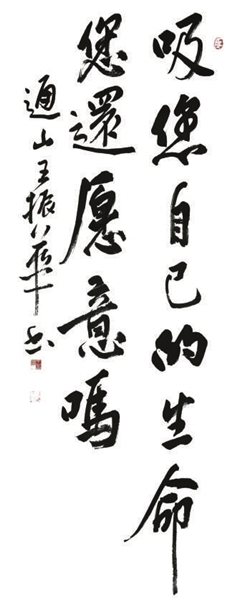 吸您自己的生命
您還愿意嗎
通山王振華书